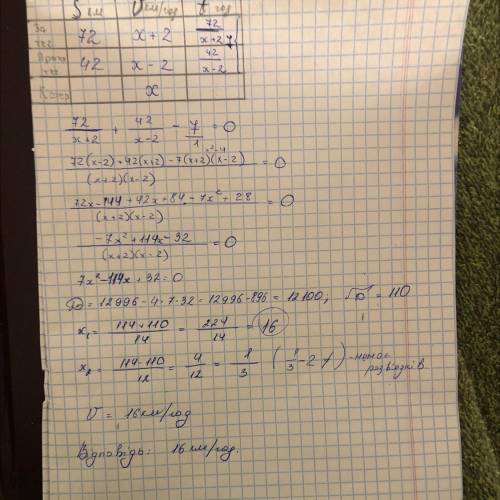 S км V км/год t год
За теч 72 x+2 72/(x+2)
42 x-2 42/(x-2) } 7
x
72/(x+2) + 42/(x-2) - 7/1 = 0
(72(x-2) + 42(x+2) - 7(x+2)(x-2))/((x+2)(x-2)) = 0
(72x-144+42x+84-7x²+28)/((x+2)(x-2)) = 0
(-7x²+114x-32)/((x+2)(x-2)) = 0
7x²-114x+32=0
D=12996-4·7·32=12996-896=12100; √D=110
x₁ = (114+110)/14 = 224/14 = 16
x₂ = (114-110)/12 = 4/12 = 1/3 (1/3-2 ≠) - немає розв'язків
V = 16км/год
Відповідь: 16 км/год.